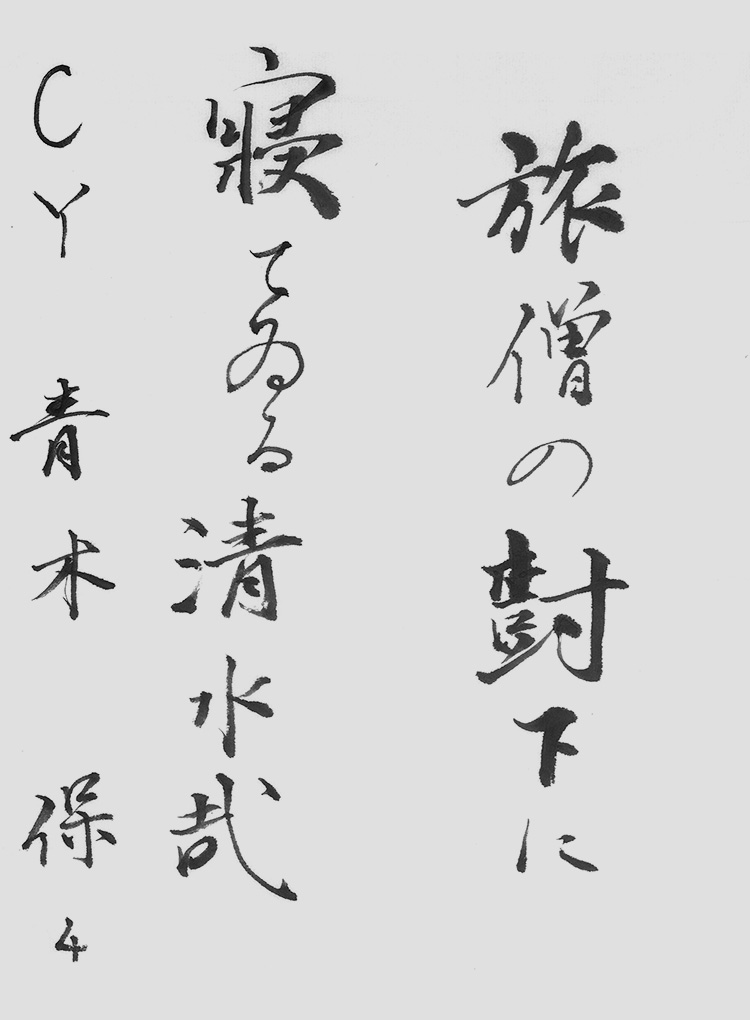 旅僧の樹下に
寝てゐる清水哉
CY 青木 保4